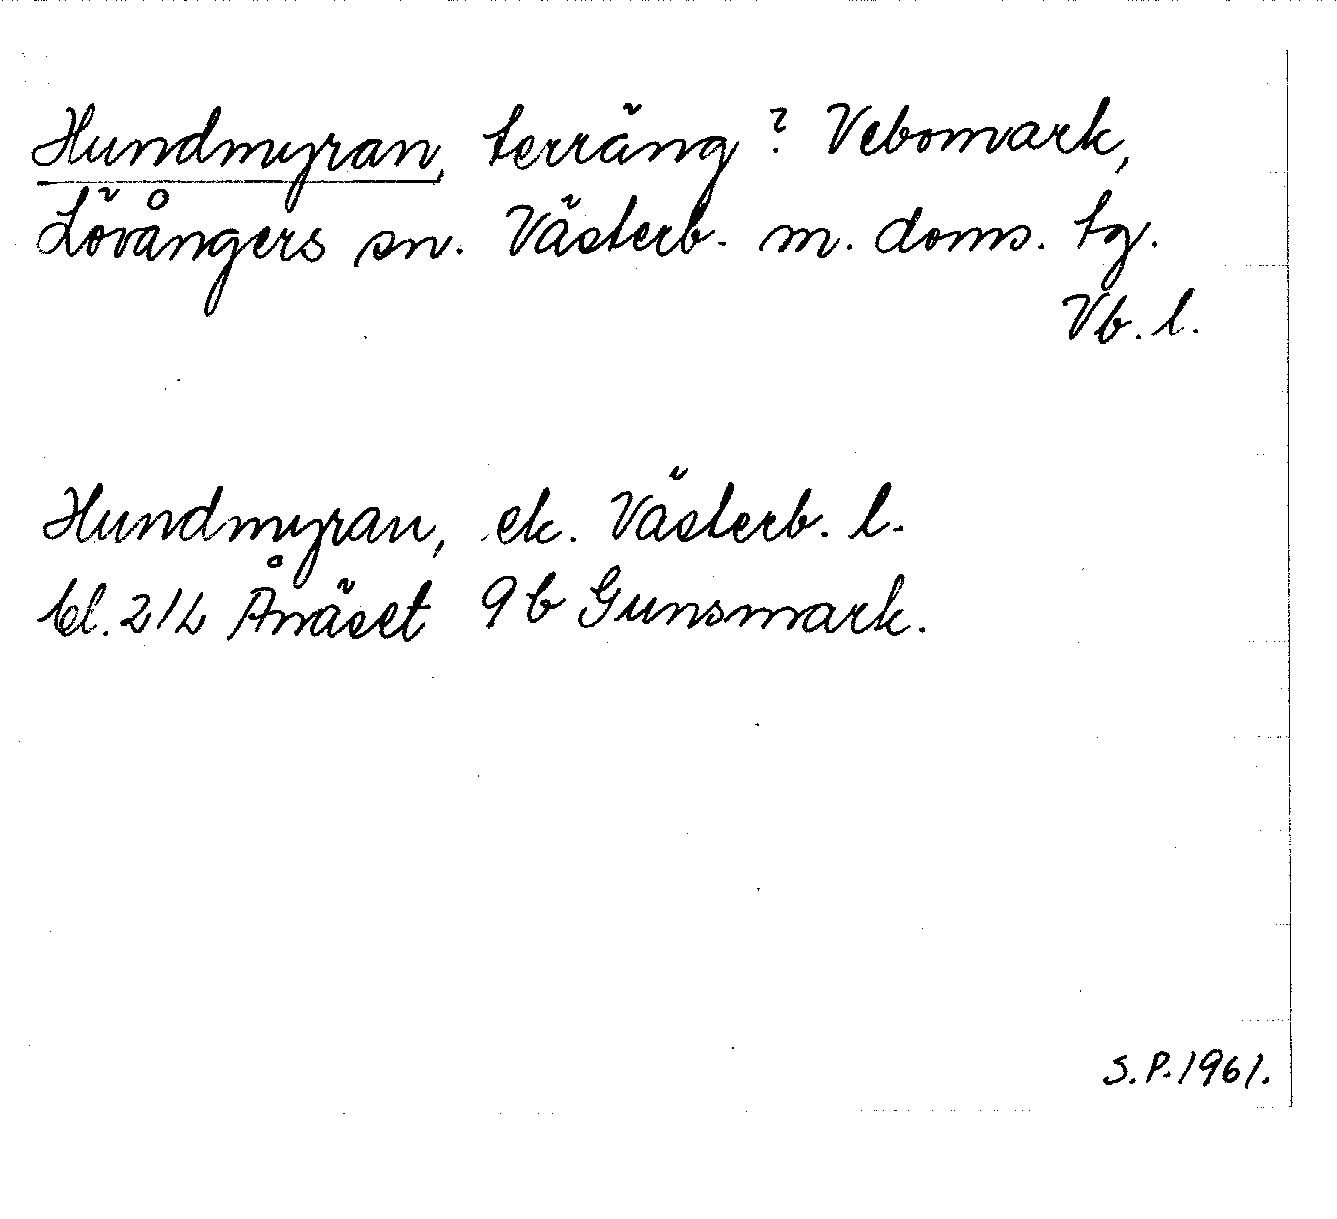 Hundmyran, terräng? Vebomark,
Lövångers sn. Västerb. m. doms. tg.
Vb. l.
Hundmyran, ek. Västerb. l.
bl. 21L Ånäset 9b Gunsmark.
S.P. 1961.